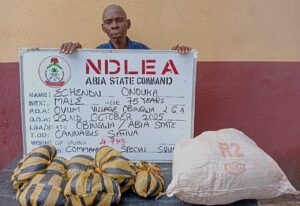 NDLEA
ABIA STATE COMMAND
NAME: ECHENDU ONUOKA
SEX: MALE AGE 75 YEARS
P.O.A: OVUM VILLAGE OBINGWA LGA
D.O.A: 22ND OCTOBER 2025
LGA/STATE OBINGWA / ABIA STATE
T.O.D: CANNABIS SATIVA
WEIGHT OF 4.7KG
COMMAND SPECIAL SQU
R2